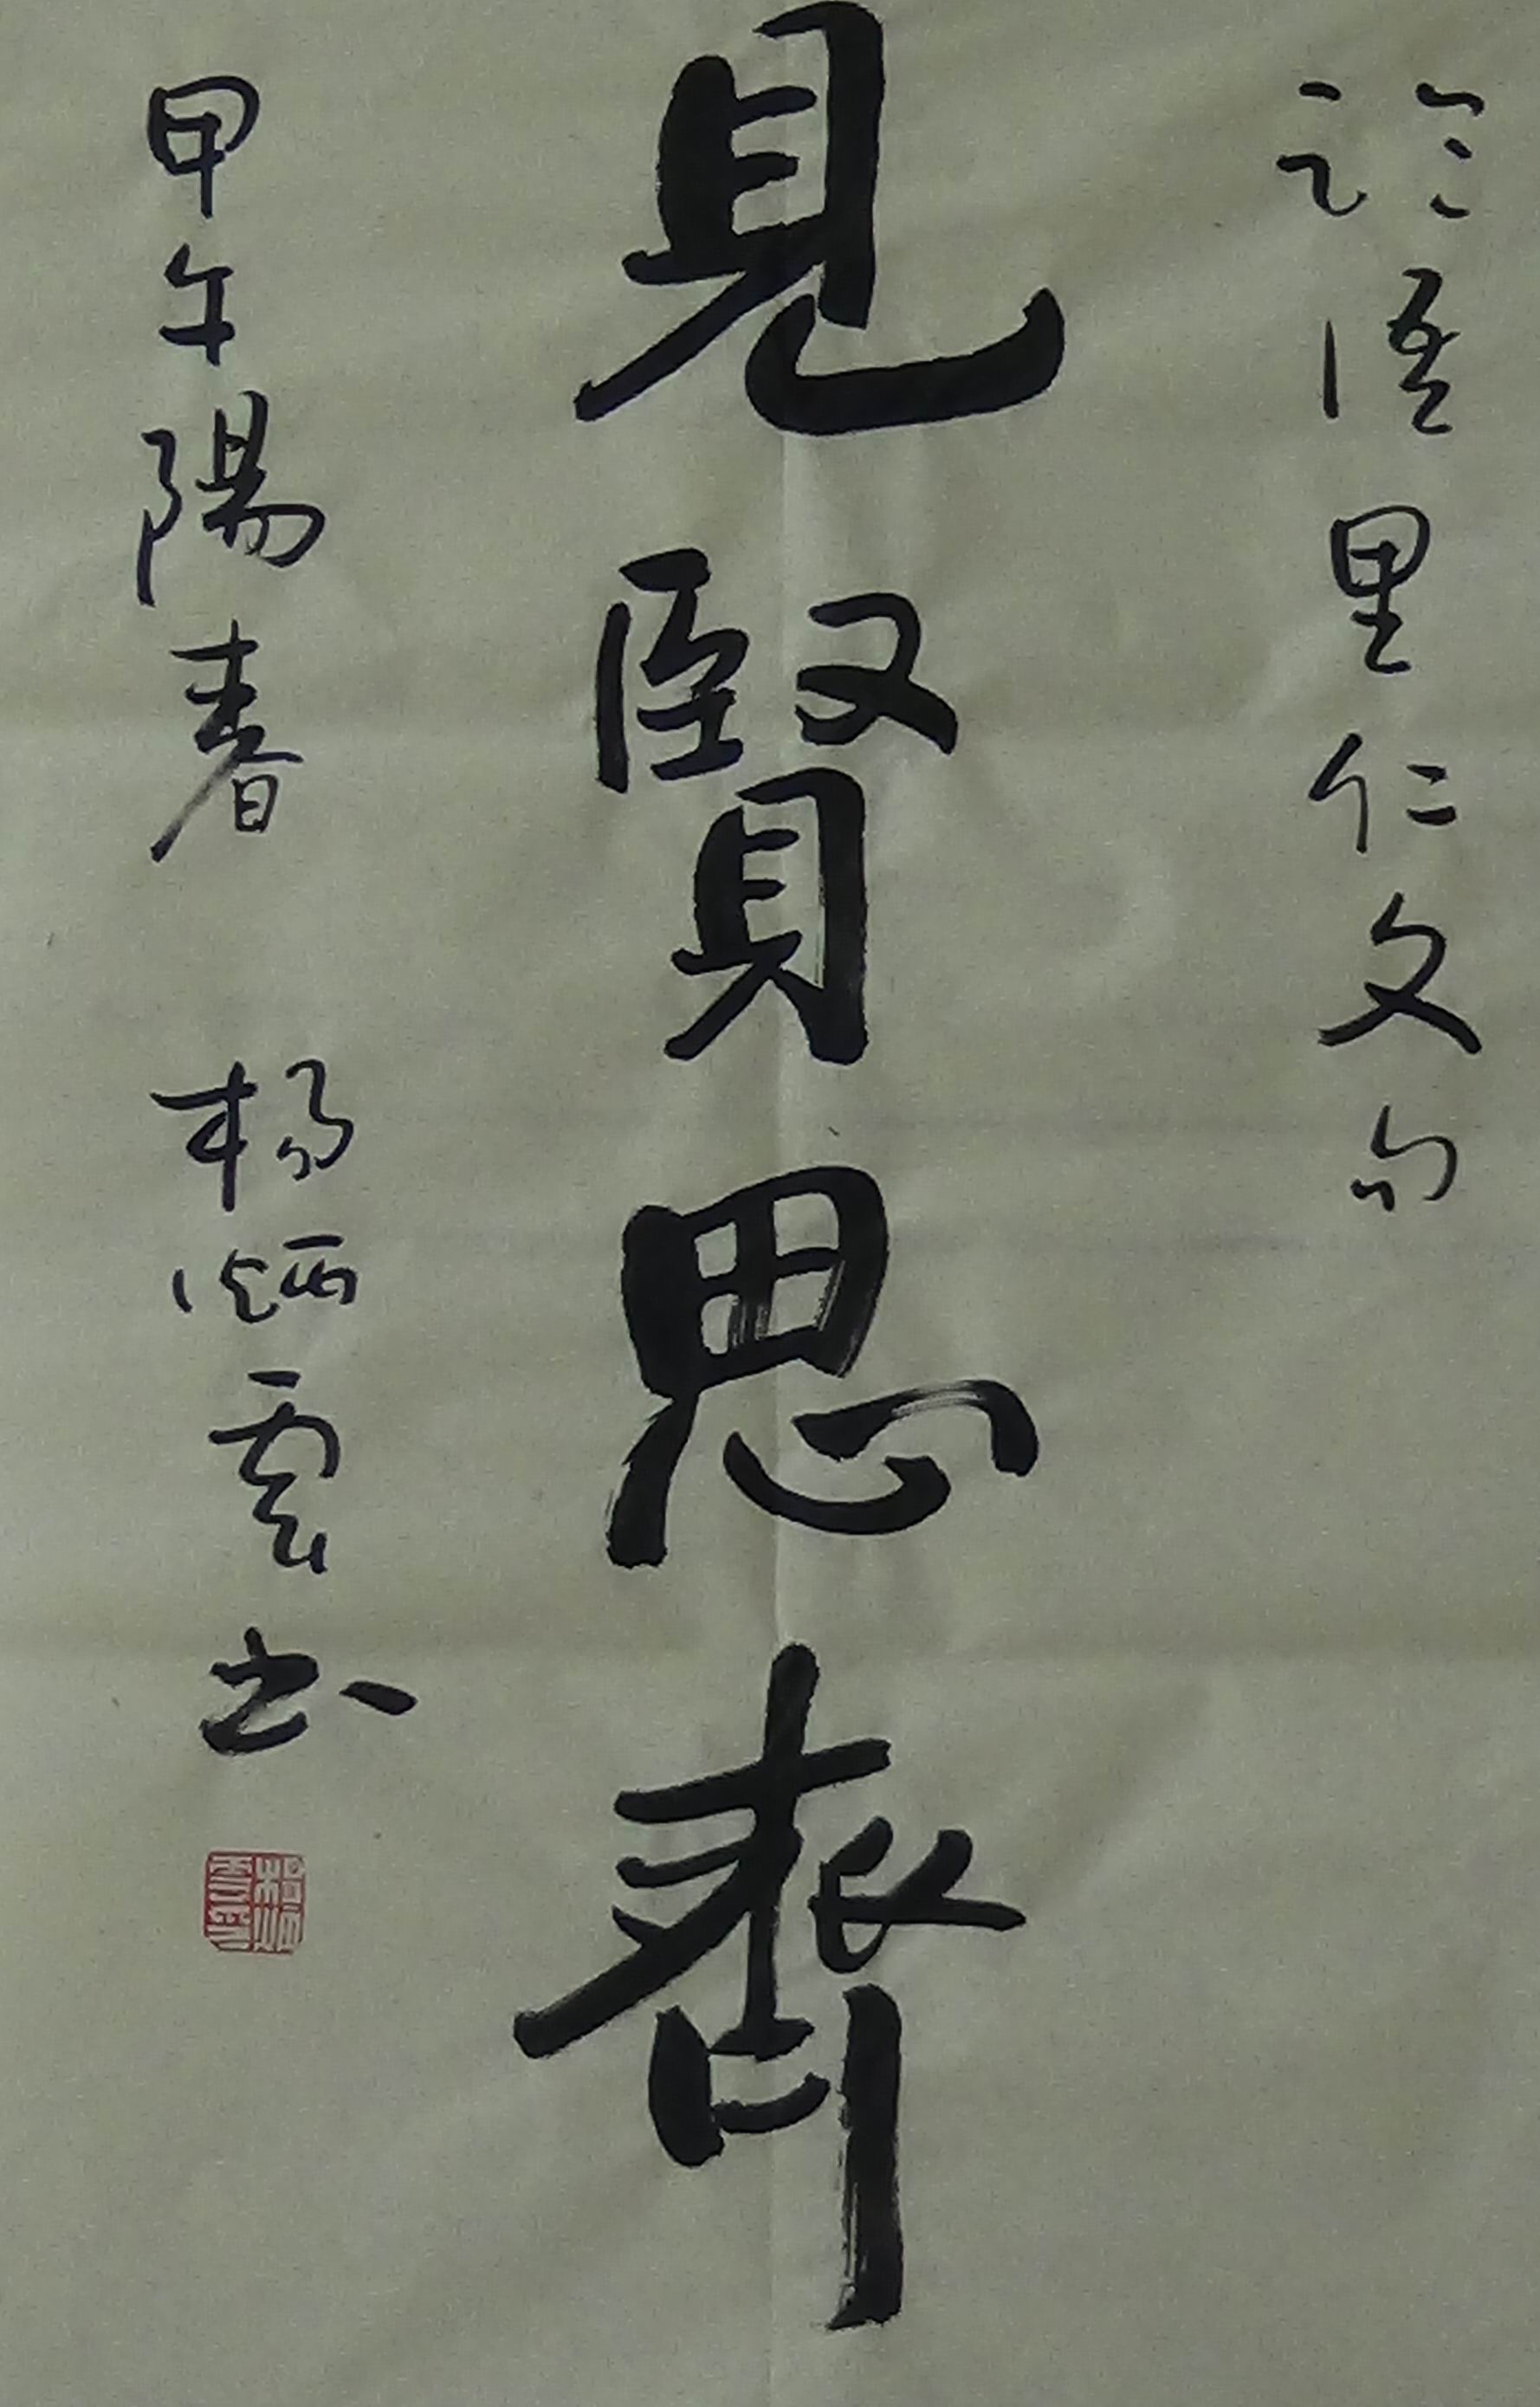 論語里仁文句
見賢思齊
甲午陽春 楊炳雲書